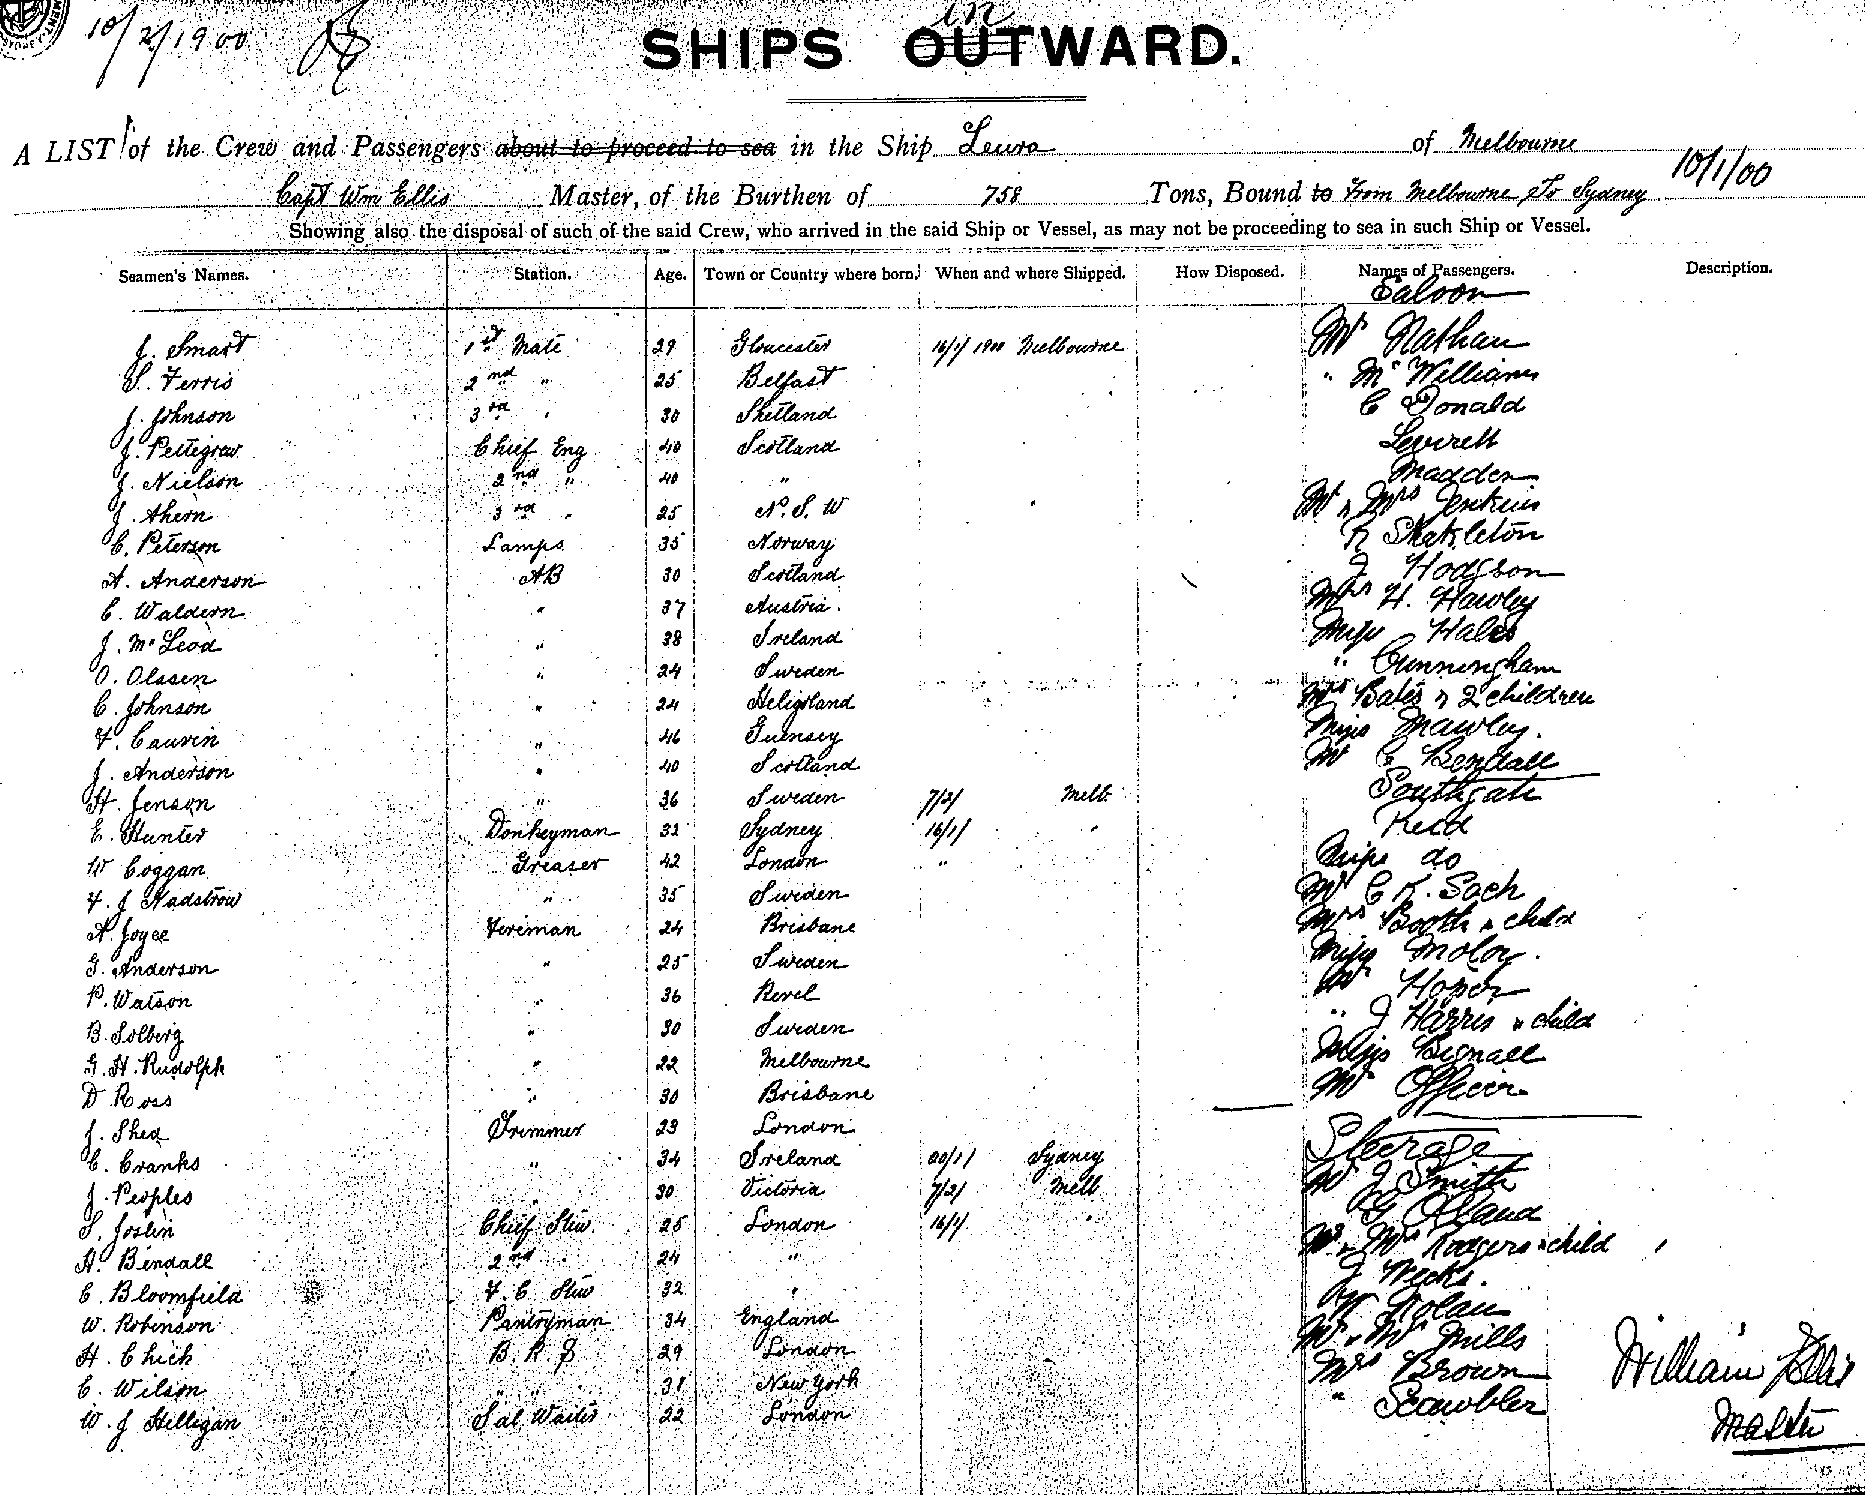 10/2/1900
in
SHIPS OUTWARD.
A LIST of the Crew and Passengers about to proceed to sea in the Ship Leura of Melbourne
10/1/00
Capt Wm Ellis Master, of the Burthen of 758 Tons, Bound to From Melbourne, To Sydney
Showing also the disposal of such of the said Crew, who arrived in the said Ship or Vessel, as may not be proceeding to sea in such Ship or Vessel.
Seamen's Names. Station. Age. Town or Country where born. When and where Shipped. How Disposed. Names of Passengers. Description.
Saloon
J. Smart 1st Mate 29 Gloucester 16/1/1900 Melbourne Mr Nathan
S. Ferris 2nd " 25 Belfast " Mc Williams
J. Johnson 3rd " 30 Shetland C Donald
J. Pettegrew Chief Eng 40 Scotland Leverett
J. Nielson 2nd " 40 " Madden
J. Ahern 3rd " 25 N. S. W Mr & Mrs Jenkins
C. Peterson Lamps 35 Norway R Shakleton
A. Anderson AB 30 Scotland J Hodgson
C. Waldern " 37 Austria. H. Hawley
J. McLeod " 38 Ireland Miss Hales
O. Olssen " 24 Sweden " Cunningham
C. Johnson " 24 Heligoland Mrs Bates & 2 children
F. Cauvin " 46 Guernsey Miss Mawley.
J. Anderson " 40 Scotland Mr G Bendall
H. Jenson " 36 Sweden 7/2/ Melb. Southgate
E. Hunter Donkeyman 32 Sydney 16/1/ " Reid
W Coggan Greaser 42 London " Miss do
F. J Hadstrow " 35 Sweden Mr C R. Soch
A. Joyce Fireman 24 Brisbane Mrs Booth & child
G. Anderson " 25 Sweden Miss Moloy.
P. Watson " 36 Revel Mr Hoper
B. Solberg " 30 Sweden " J Harris & child
G. H. Rudolph " 22 Melbourne Miss Bignall
D Ross " 30 Brisbane Mr Officer
J. Shea Trimmer 23 London Steerage
C. Cranks " 34 Ireland 20/1/ Sydney Mr J Smith
J. Peoples " 30 Victoria 7/2/ Melb G Olland
S. Joslin Chief Stew. 25 London 16/1/ " Mr & Mrs Rodgers & child
A. Bindall 2nd " 24 " J Weeks.
C. Bloomfield F. C. Stew 32 " Nolan
W. Robinson Pantryman 34 England Mr & Mrs Mills
H. Chick B. R S 29 London Mrs Brown
C. Wilson " " " 31 New York " Scambler
W. J Hilligan Sal Waiter 22 London
William Ellis
Master